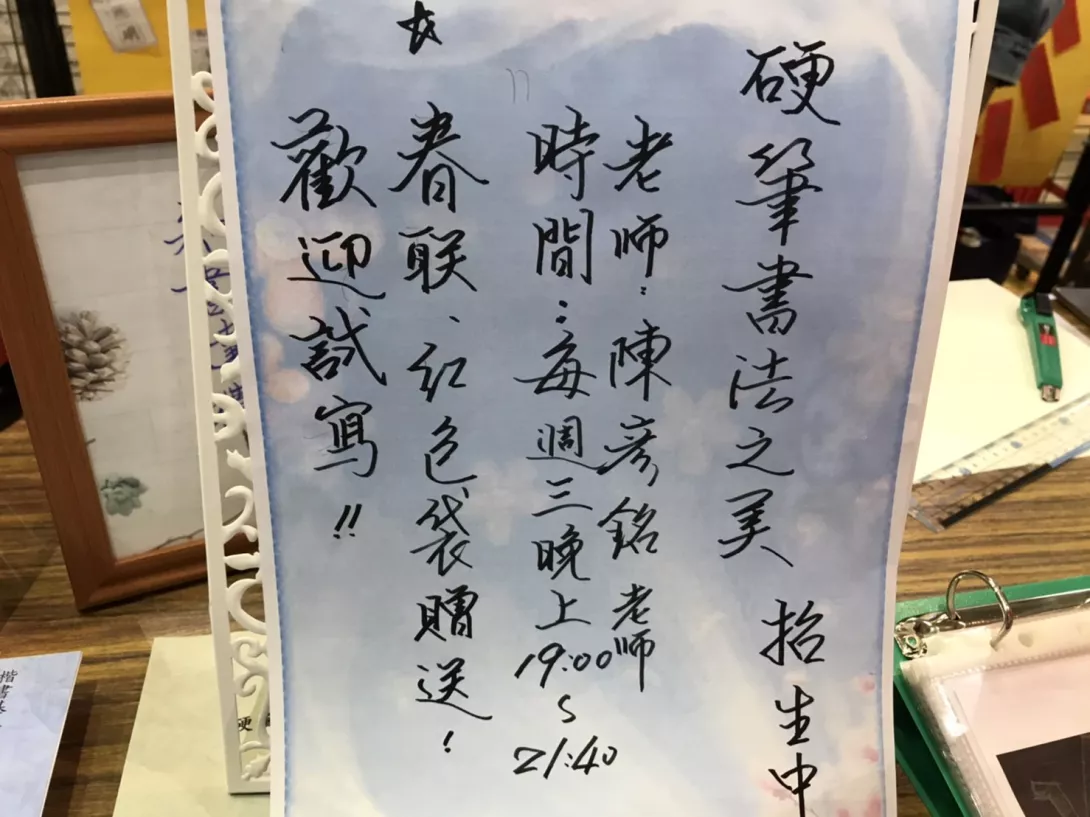 硬筆書法之美 招生中
老师:陳彥銘老师
時間:每週三晚上19:00~21:40
★
春联、红色袋贈送!
歡迎試寫!!
楷書
硬